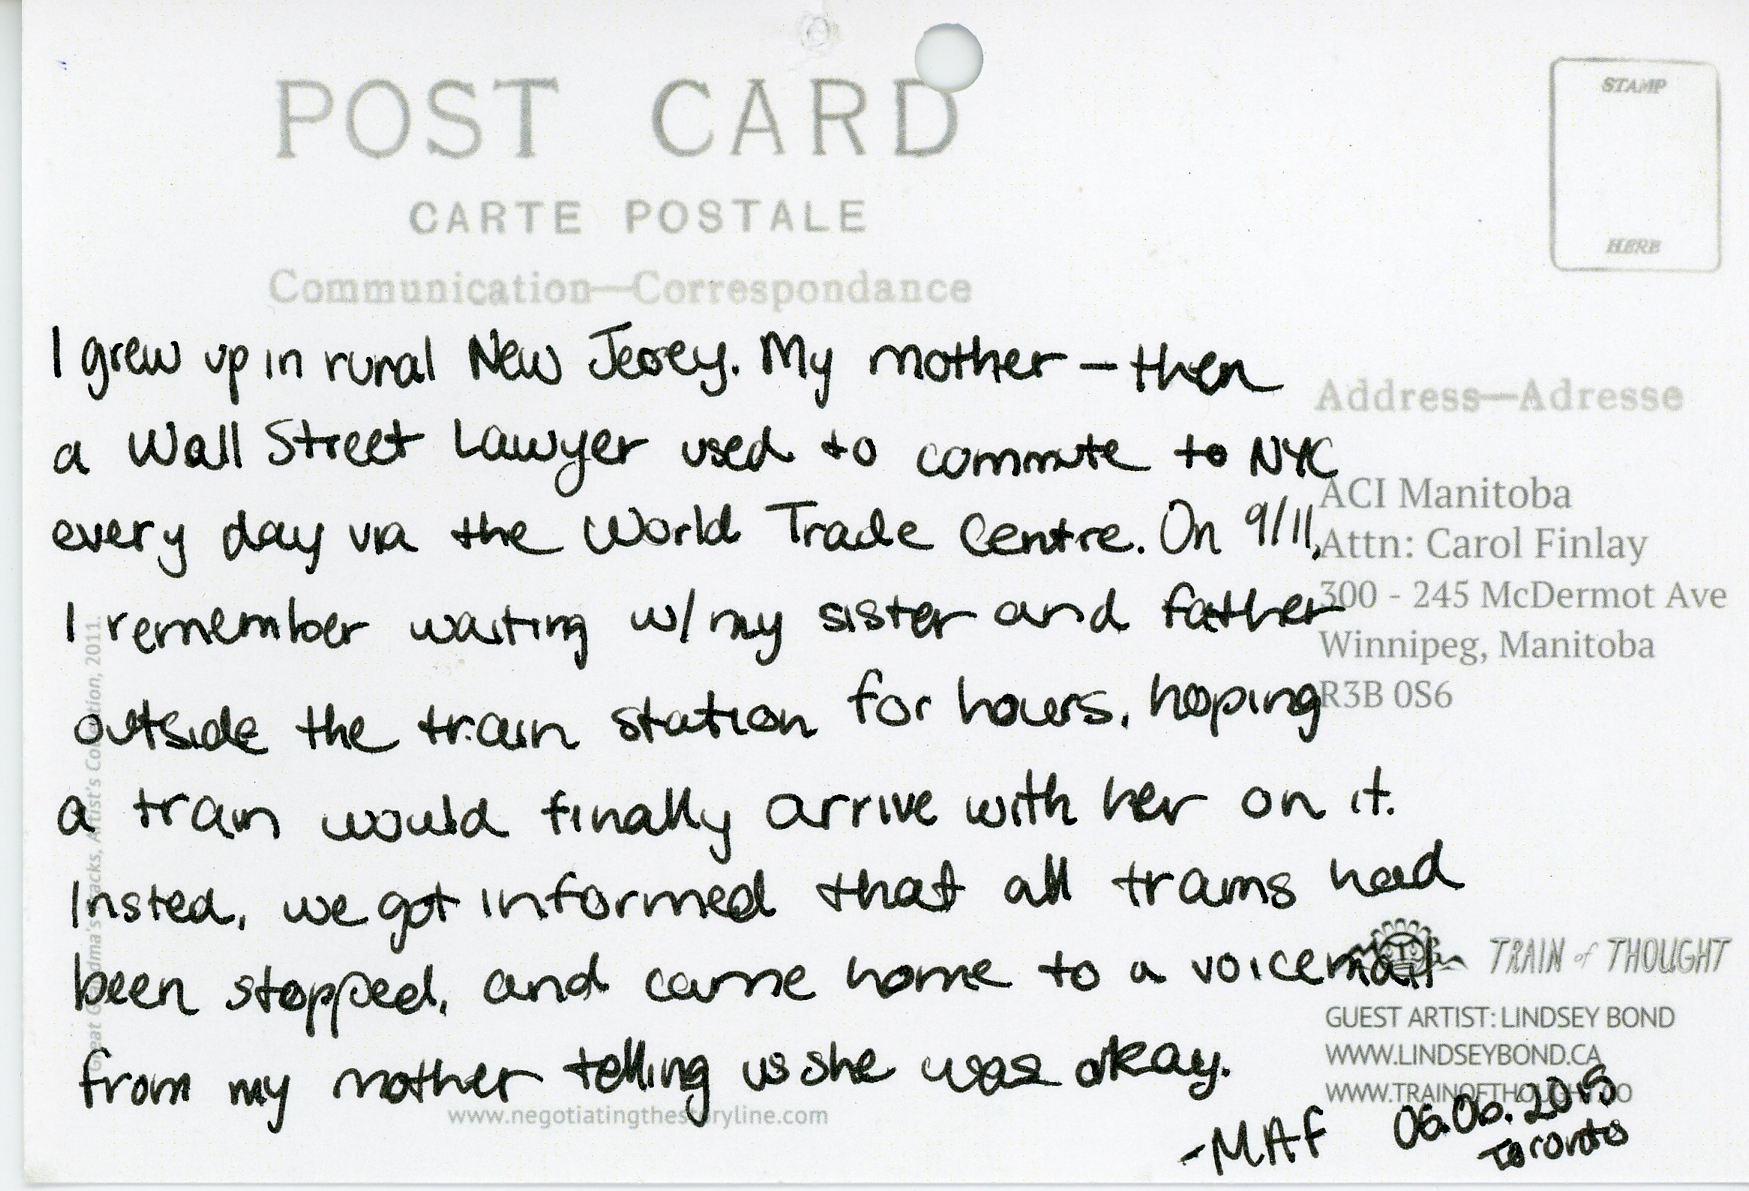 POST CARD
CARTE POSTALE
Communication—Correspondance
STAMP
HERE
I grew up in rural New Jersey. My mother – then
a Wall Street Lawyer used to commute to NYC
every day via the World Trade Centre. On 9/11,
I remember waiting w/ my sister and father
outside the train station for hours, hoping
a train would finally arrive with her on it.
Insted, we got informed that all trains had
been stopped, and came home to a voicemail
from my mother telling us she was okay.
-MAF
06.06.2015
Toronto
Address—Adresse
ACI Manitoba
Attn: Carol Finlay
300 - 245 McDermot Ave
Winnipeg, Manitoba
R3B 0S6
TRAIN of THOUGHT
GUEST ARTIST: LINDSEY BOND
WWW.LINDSEYBOND.CA
WWW.TRAINOFTHOUGHT.CO
www.negotiatingthestoryline.com
Great Grandma's Tracks, Artist's Collection, 2011.